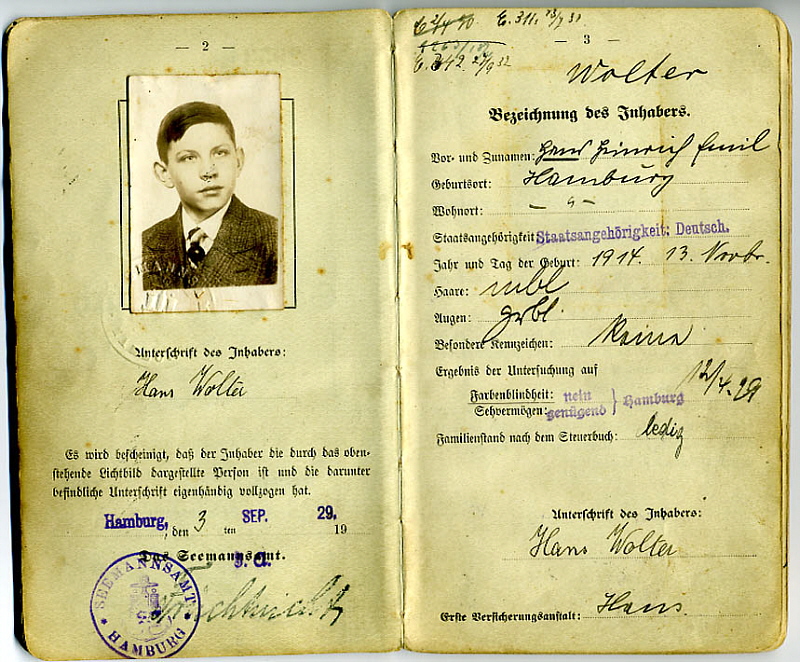 — 2 —
Unterschrift des Inhabers:
Hans Wolter
Es wird bescheinigt, daß der Inhaber die durch das oben-
stehende Lichtbild dargestellte Person ist und die darunter
befindliche Unterschrift eigenhändig vollzogen hat.
Hamburg, den 3 ten SEP. 1929.
Das Seemannsamt.
J. A.
SEEMANNSAMT
HAMBURG
E. 311. 13/7 31
— 3 —
E. 342. 27/9 32
Wolter
Bezeichnung des Inhabers.
Vor- und Zunamen: Hans Heinrich Emil
Geburtsort: Hamburg
Wohnort: — " —
Staatsangehörigkeit Staatsangehörigkeit: Deutsch.
Jahr und Tag der Geburt: 1914. 13. Novbr.
Haare: mbl
Augen: grbl.
Besondere Kennzeichen: Keine
Ergebnis der Untersuchung auf
Farbenblindheit: nein
Sehvermögen: genügend } Hamburg 12/4. 29
Familienstand nach dem Steuerbuch: ledig
Unterschrift des Inhabers:
Hans Wolter
Erste Versicherungsanstalt: Hans.